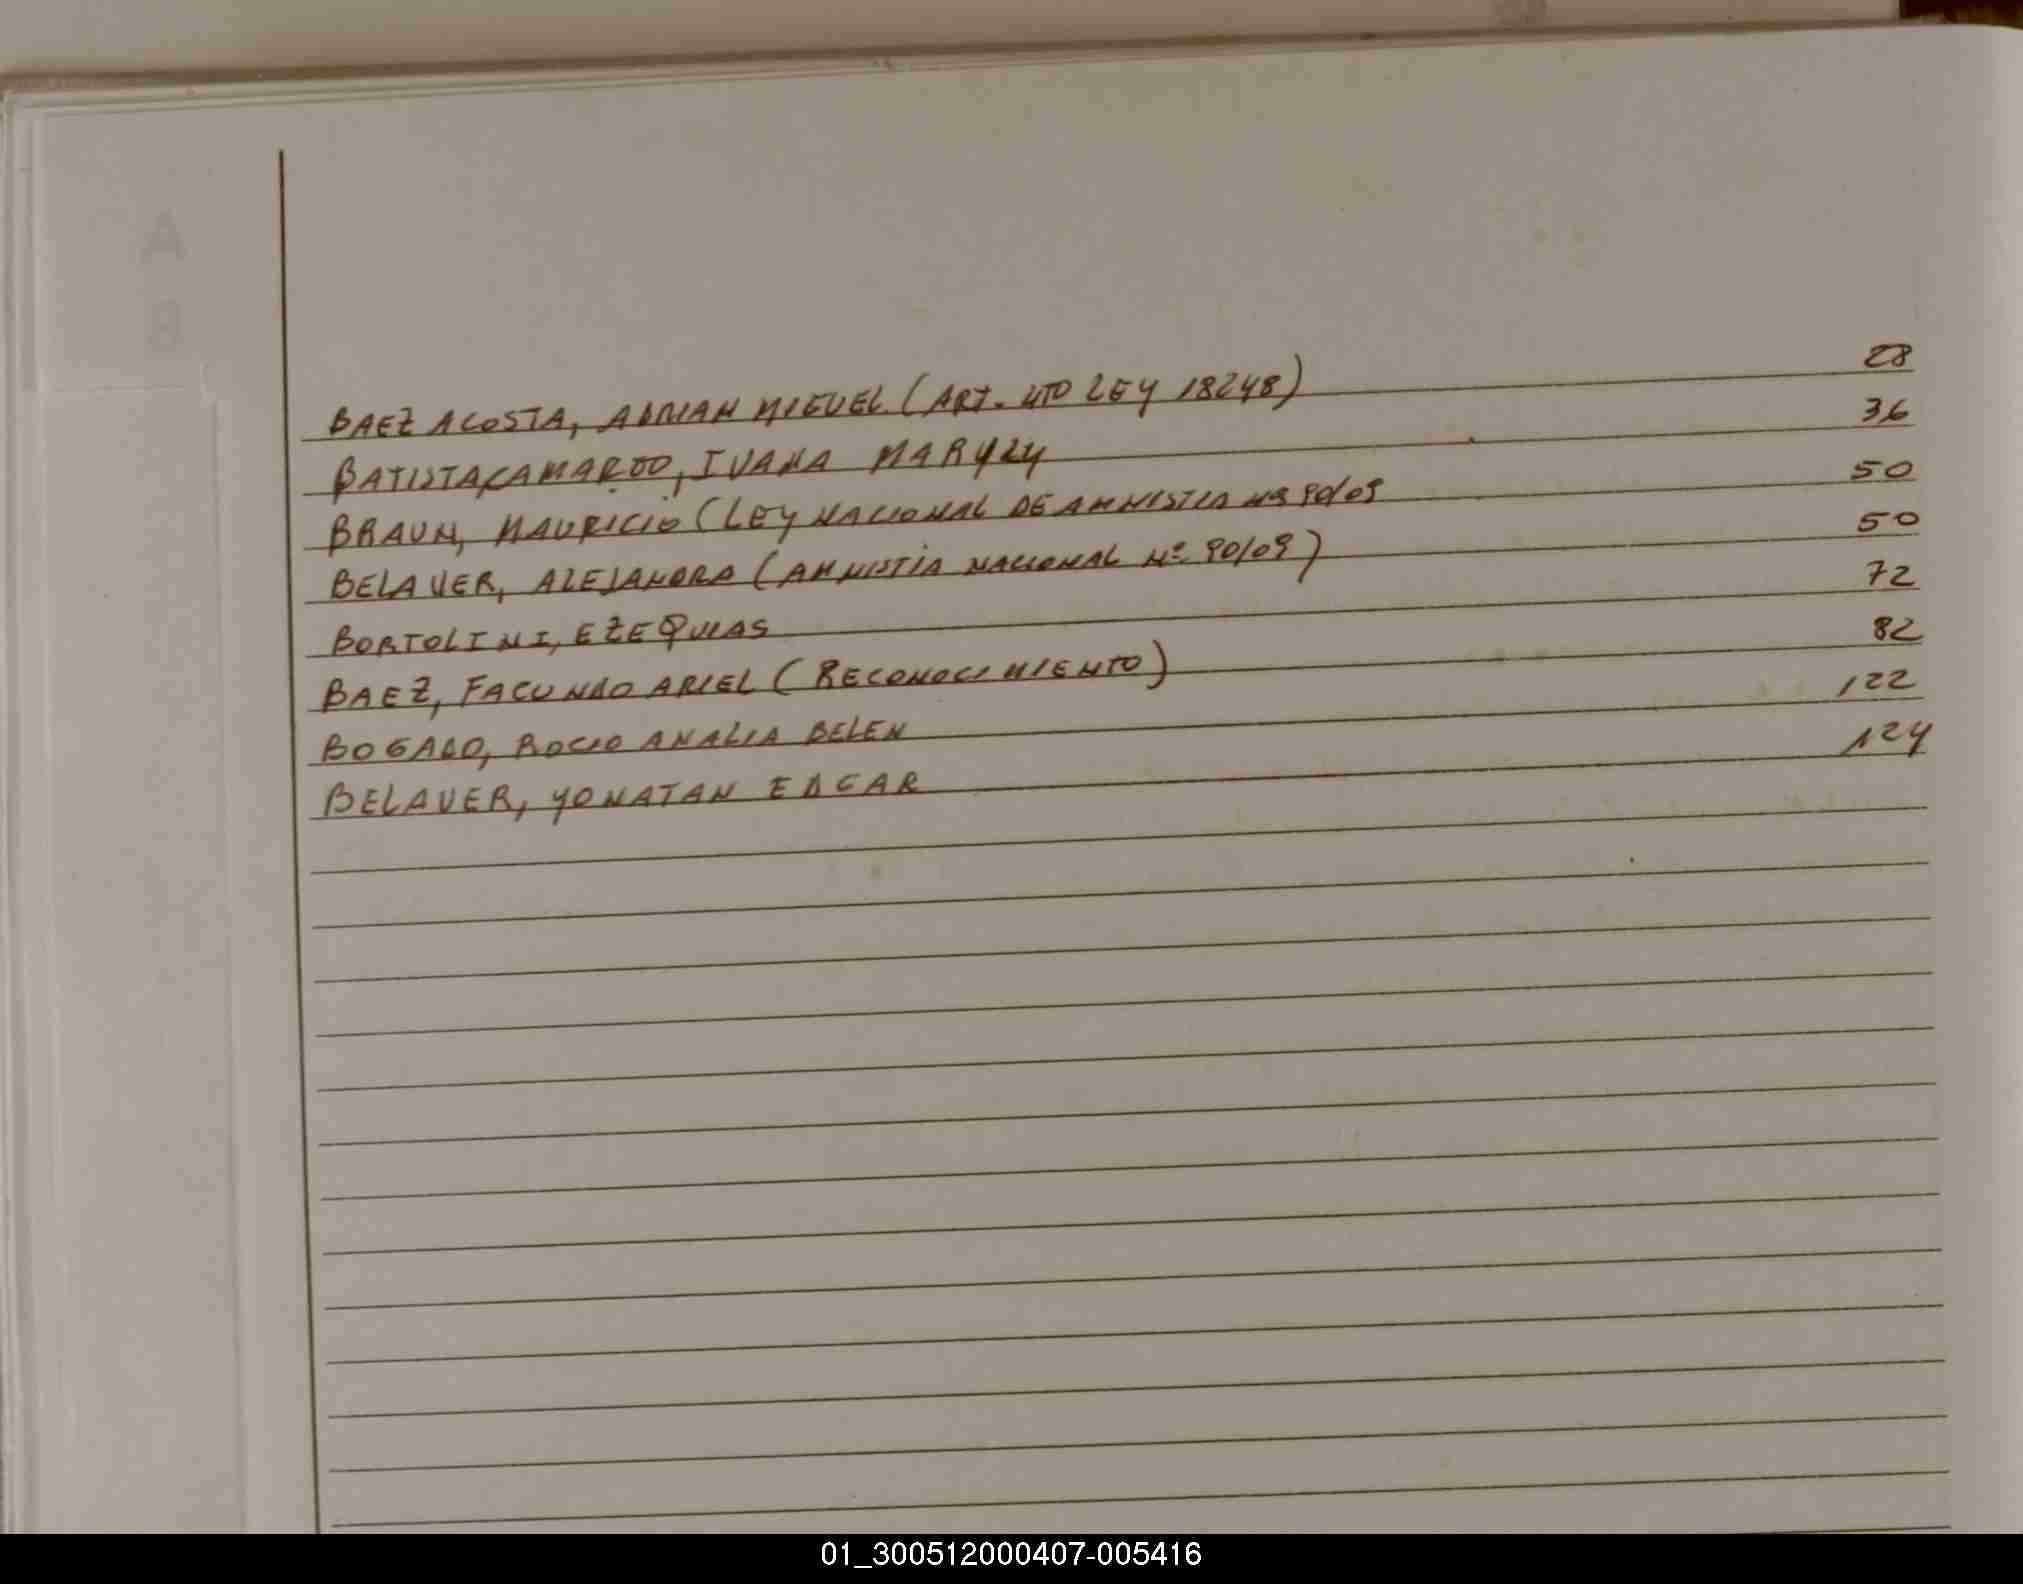 A
B
BAEZ ACOSTA, ADRIAN MIGUEL (ART. 4TO LEY 18248) 28
BATISTA CAMARGO, IVANA MARYLY 36
BRAUN, MAURICIO (LEY NACIONAL DE AMNISTIA Nº 90/09 50
BELAVER, ALEJANDRA (AMNISTIA NACIONAL Nº 90/09) 50
BORTOLINI, EZEQUIAS 72
BAEZ, FACUNDO ARIEL (RECONOCIMIENTO) 82
BOGADO, ROCIO ANALIA BELEN 122
BELAVER, YONATAN EDGAR 124
01_300512000407-005416